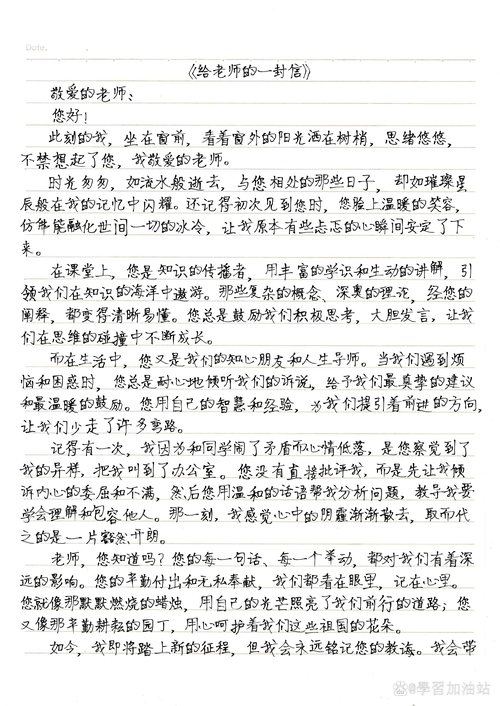 Date.
《给老师的一封信》
敬爱的老师：
您好！
此刻的我，坐在窗前，看着窗外的阳光洒在树梢，思绪悠悠，
不禁想起了您，我敬爱的老师。
时光匆匆，如流水般逝去，与您相处的那些日子，却如璀璨星
辰般在我的记忆中闪耀。还记得初次见到您时，您脸上温暖的笑容，
仿佛能融化世间一切的冰冷，让我原本有些忐忑的心瞬间安定了下
来。
在课堂上，您是知识的传播者，用丰富的学识和生动的讲解，引
领我们在知识的海洋中遨游。那些复杂的概念、深奥的理论，经您的
阐释，都变得清晰易懂。您总是鼓励我们积极思考，大胆发言，让我
们在思维的碰撞中不断成长。
而在生活中，您又是我们的知心朋友和人生导师。当我们遇到烦
恼和困惑时，您总是耐心地倾听我们的诉说，给予我们最真挚的建议
和最温暖的鼓励。您用自己的智慧和经验，为我们指引着前进的方向，
让我们少走了许多弯路。
记得有一次，我因为和同学闹了矛盾而心情低落，是您察觉到了
我的异样，把我叫到了办公室。您没有直接批评我，而是先让我倾
诉内心的委屈和不满，然后您用温和的话语帮我分析问题，教导我要
学会理解和包容他人。那一刻，我感觉心中的阴霾渐渐散去，取而代
之的是一片豁然开朗。
老师，您知道吗？您的每一句话、每一个举动，都对我们有着深
远的影响。您的辛勤付出和无私奉献，我们都看在眼里，记在心里。
您就像那默默燃烧的蜡烛，用自己的光芒照亮了我们前行的道路；您
又像那辛勤耕耘的园丁，用心呵护着我们这些祖国的花朵。
如今，我即将踏上新的征程，但我会永远铭记您的教诲。我会带
@學習加油站